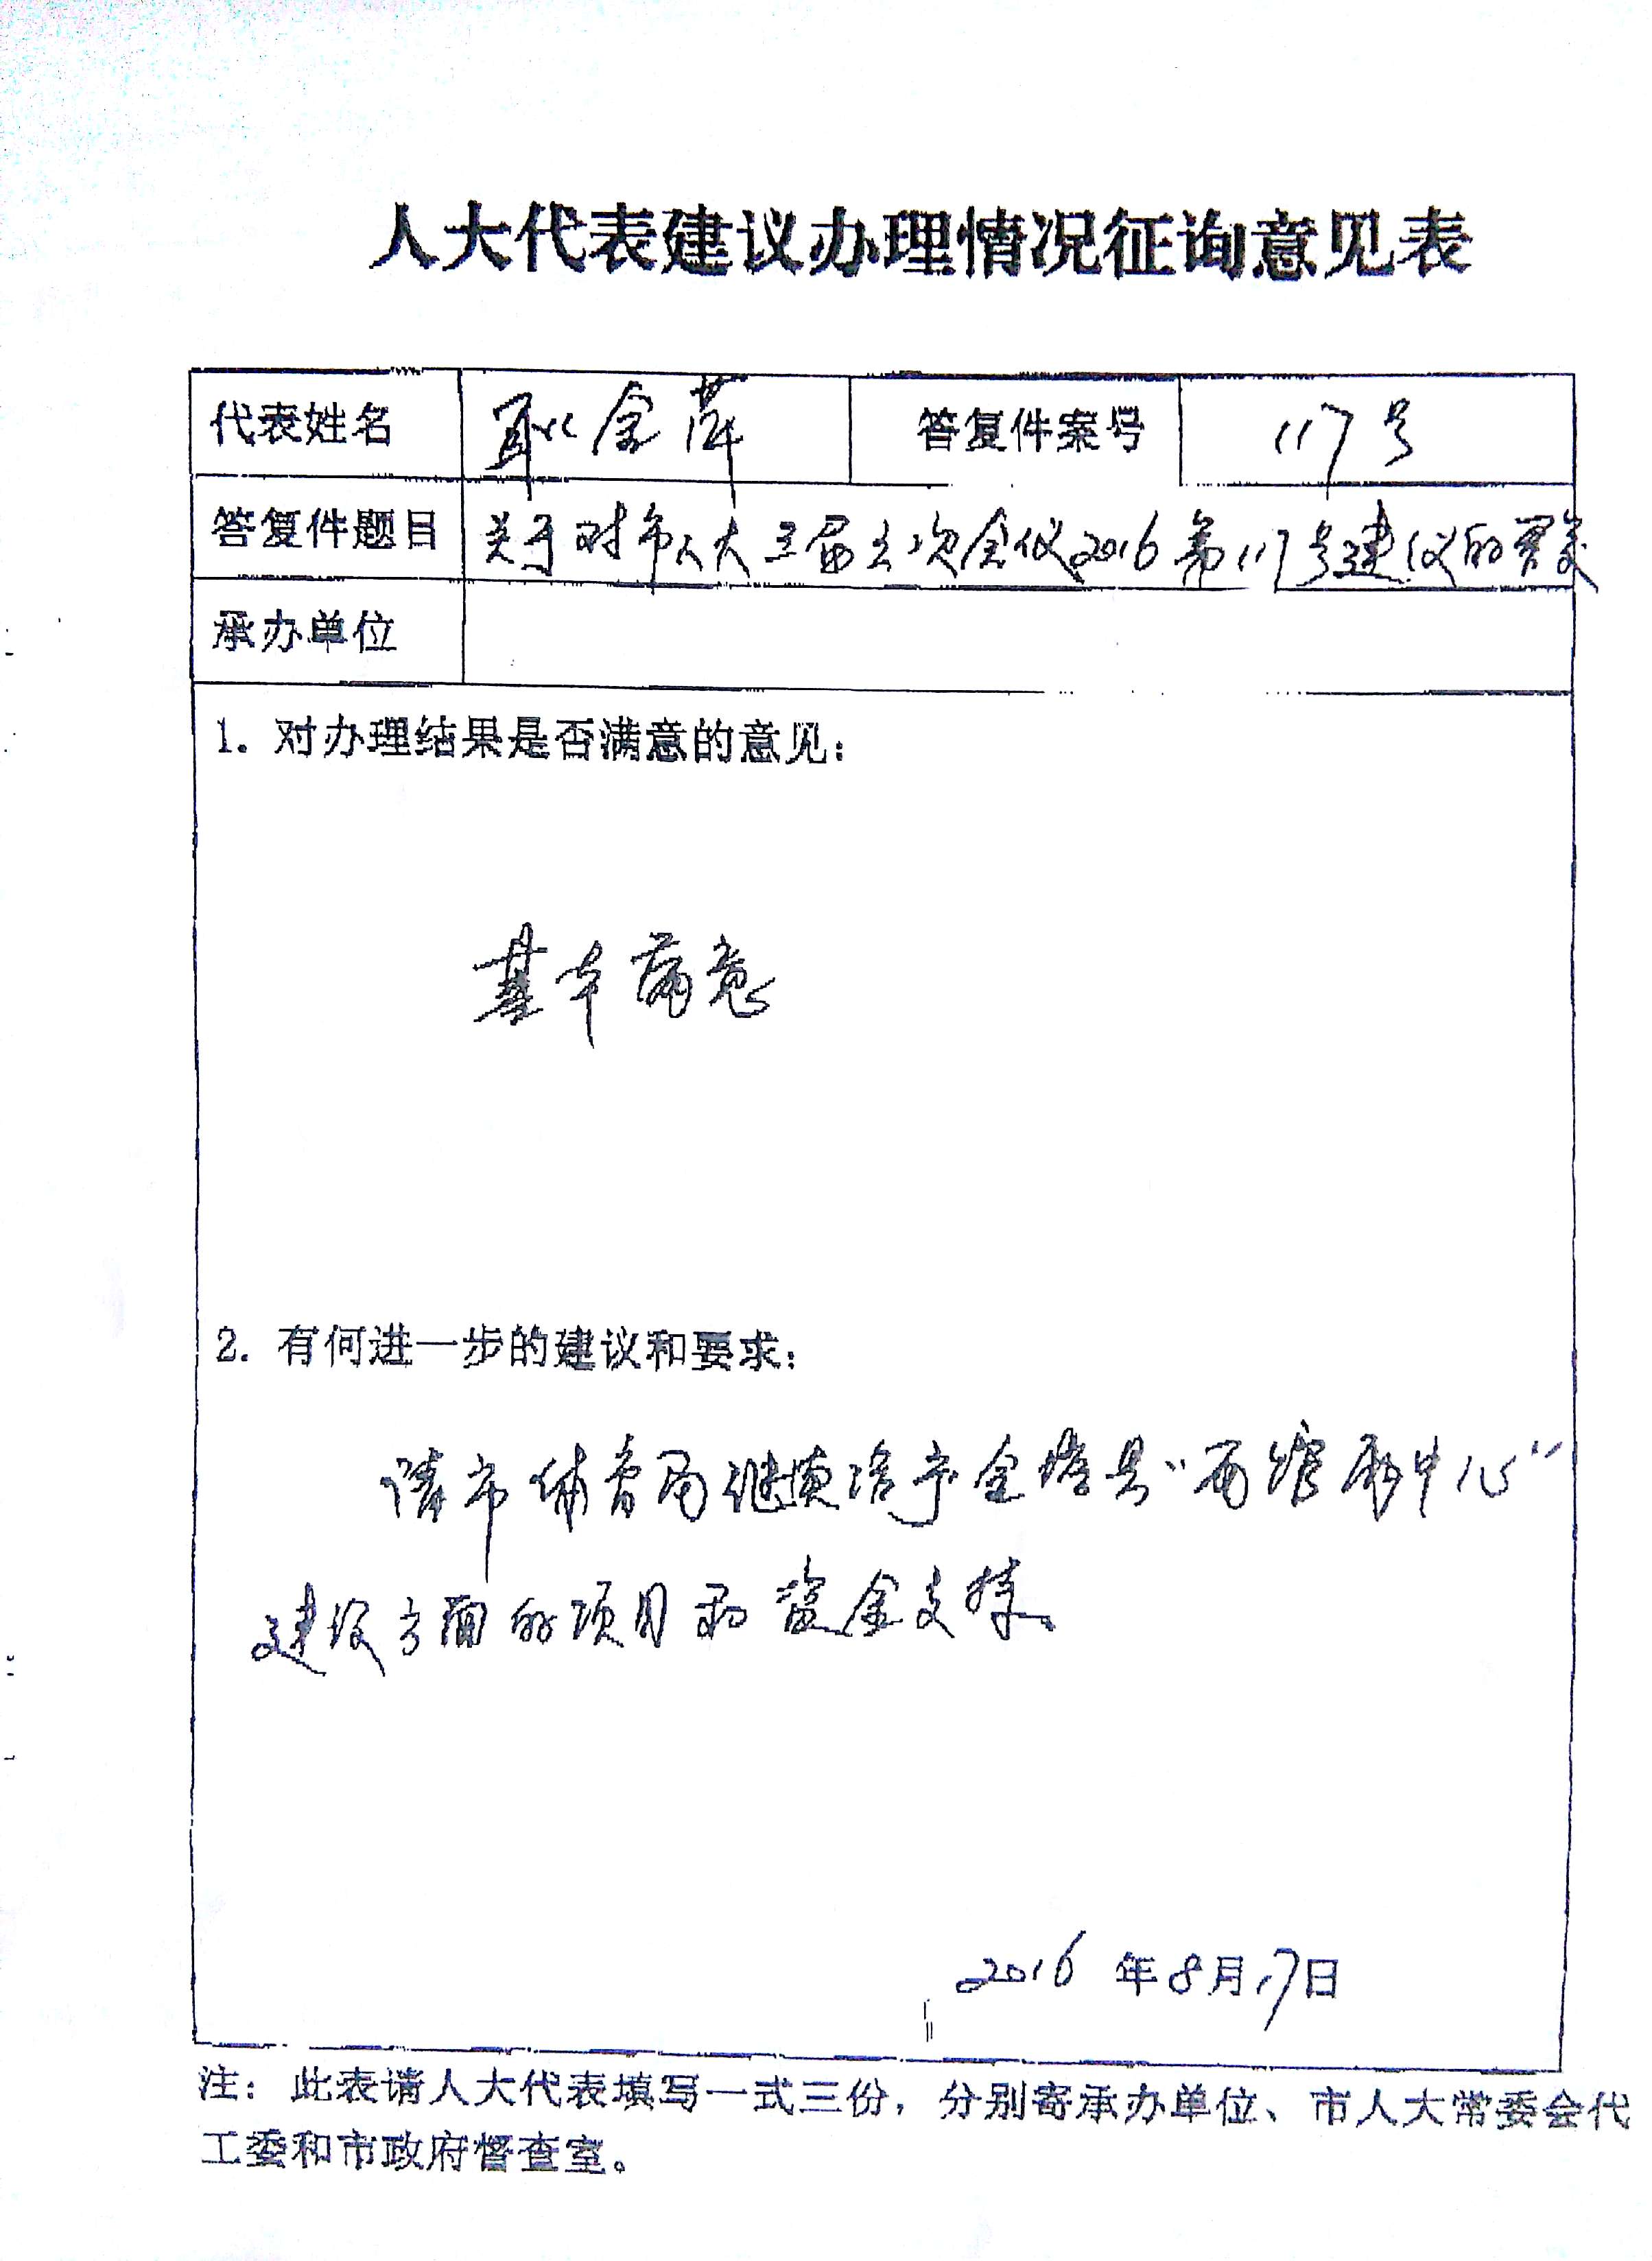 人大代表建议办理情况征询意见表
代表姓名 耿金萍 答复件案号 117号
答复件题目 关于对市人大三届六次会议2016第117号建议的答复
承办单位
1. 对办理结果是否满意的意见:
基本满意
2. 有何进一步的建议和要求:
请市体育局继续给予金塔县“两馆 中心”
建设方面的项目和资金支持。
2016年8月17日
注: 此表请人大代表填写一式三份, 分别寄承办单位、市人大常委会代
工委和市政府督查室。